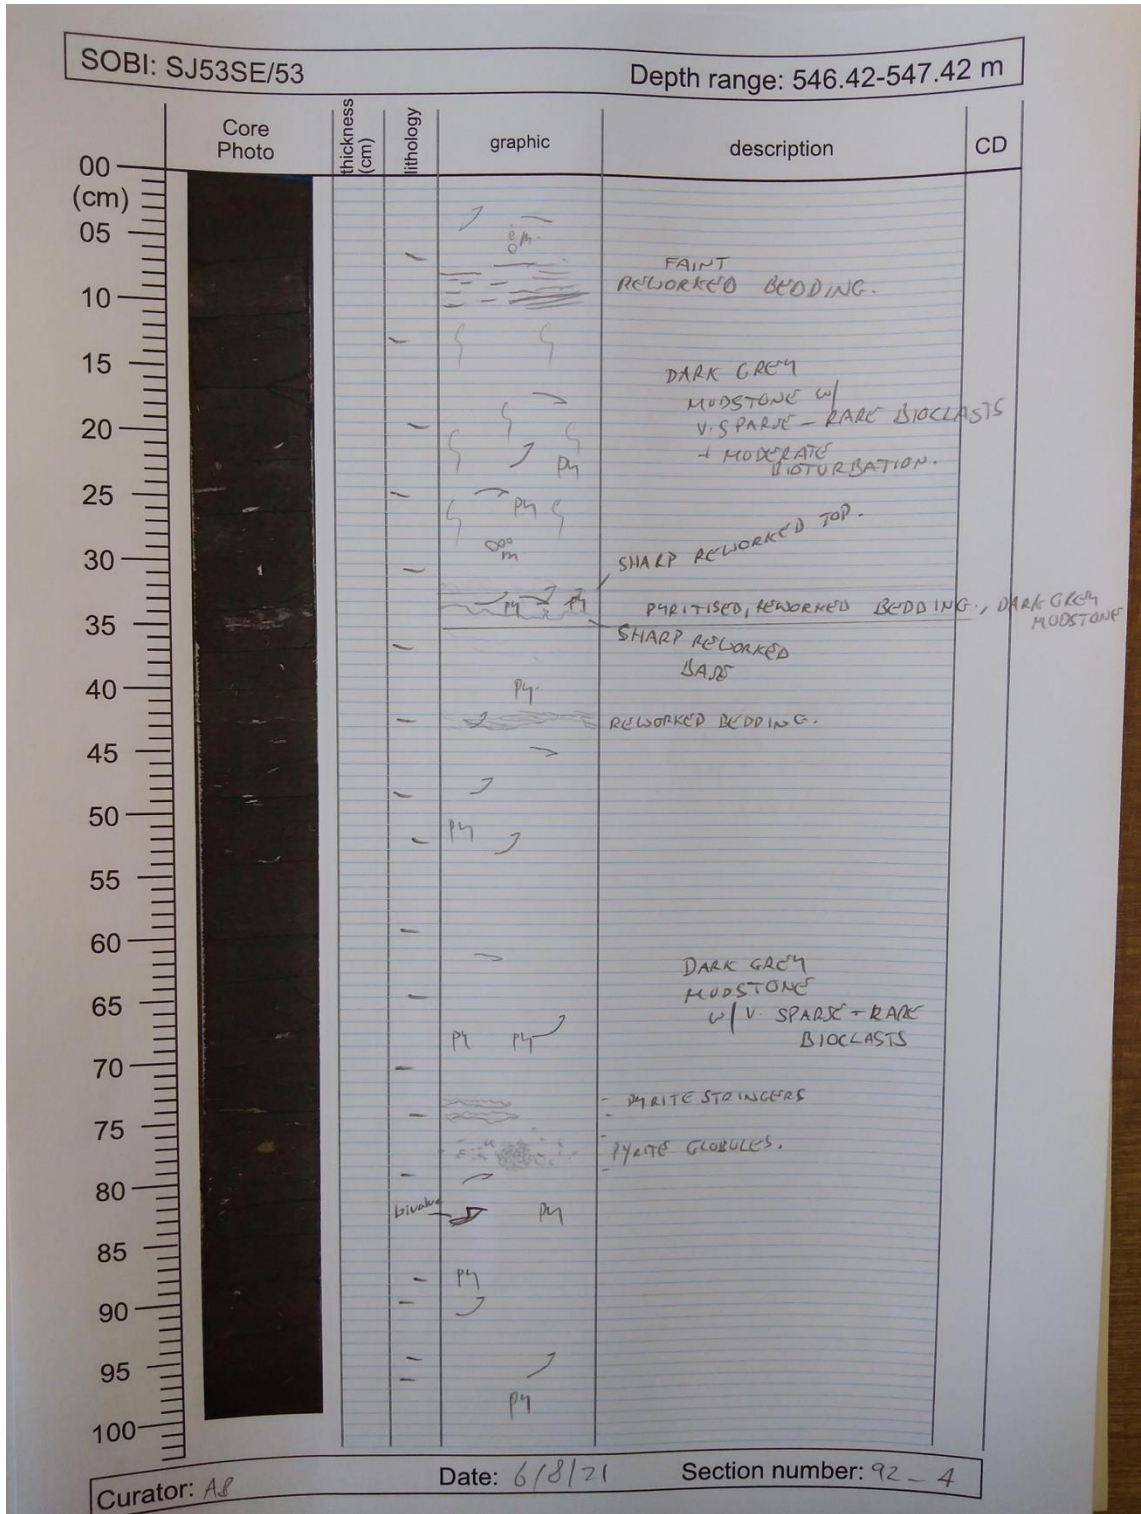 SOBI: SJ53SE/53
Depth range: 546.42-547.42 m
Core
Photo
thickness
(cm)
lithology
graphic
description
CD
00
(cm)
05
10
15
20
25
30
35
40
45
50
55
60
65
70
75
80
85
90
95
100
m
FAINT
REWORKED BEDDING.
DARK GREY
MUDSTONE W/
V. SPARSE - RARE BIOCLASTS
+ MODERATE
BIOTURBATION.
py
py
m
SHARP REWORKED TOP.
py
py
PYRITISED, REWORKED BEDDING., DARK GREY
MUDSTONE
SHARP REWORKED
BASE
py.
REWORKED BEDDING.
py
DARK GREY
MUDSTONE
W/ V. SPARSE - RARE
BIOCLASTS
py py
- PYRITE STRINGERS
PYRITE GLOBULES.
bivalve
py
py
py
Curator: AB
Date: 6/8/21
Section number: 92_4